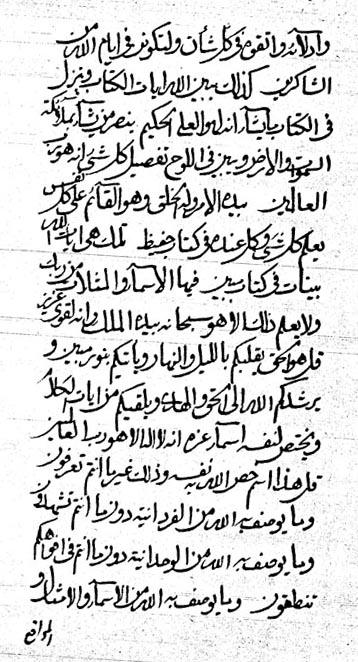 وادلاء واتقوه في كل شأن ولتكونن في ايام الله من
الشاكرين كذلك يبين الله ايات الكتاب وينزل
في الكتاب ما يشاء انه لهو العلي الحكيم ينصر من يشاء بملائكة
السموات والارض ويبين في اللوح تفصيل كل شئ انه هو رب
العالمين بيده الامر والخلق وهو القائم على كل نفس
يعلم كل شئ وكل عنده في كتاب حفيظ تلك هي ايات الله
بينات في كتاب مبين فيها الاسماء والمثلات من ربك
ولا يعلم ذلك الا هو سبحانه بيده الملك وانه لقوي عزيز
قل هو الحق يقلبكم بالليل والنهار وياتيكم بنور مبين و
يرشدكم الله الى الحق والهدى ويلقيكم من ايات الكلام
ويختص لنفسه اسماء عزه انه لا اله الا هو رب العالمين
قل هذا اسم خص الله به نفسه وذلك غير ما انتم تعرفون
وما يوصف به الله من الفردانية دون ما انتم تشهدون
وما يوصف به الله من الوحدانية دون ما انتم في افواهكم
تنطقون وما يوصف به الله من الاسماء والامثال و